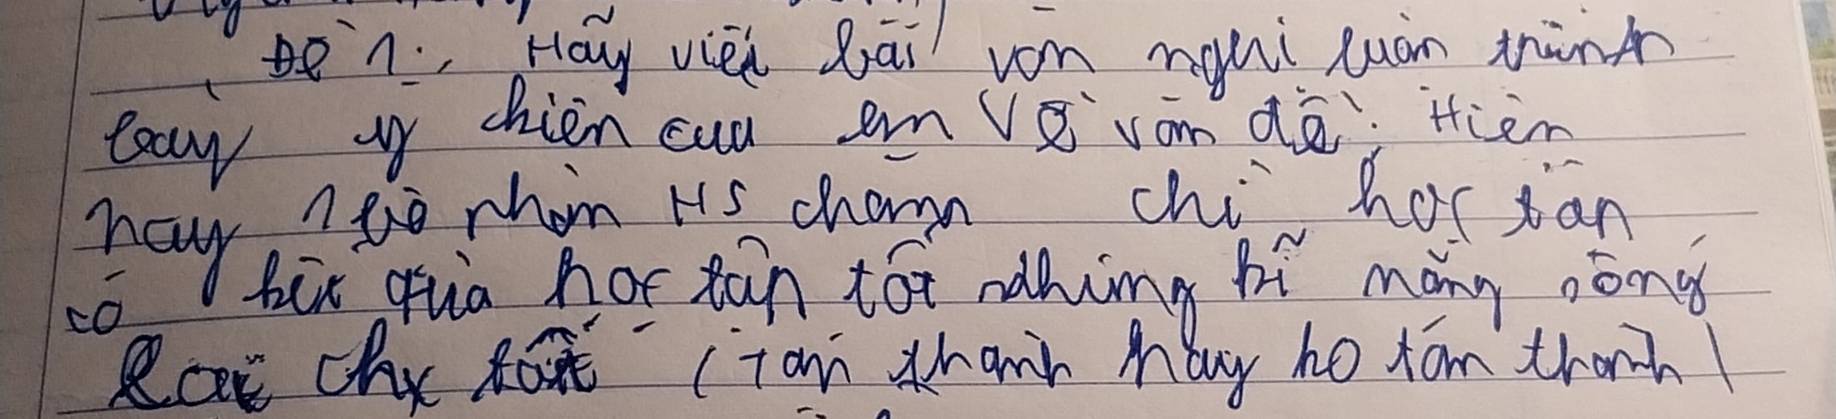 Đề 1: Hãy viết bài văn nghị luận trình
bày ý kiến của em về vấn đề: Hiện
nay 1 bộ phận HS chăm chỉ học tập
có kết quả học tập tốt nhưng kĩ năng sống
chưa tốt (Tán thành hay ko tán thành)